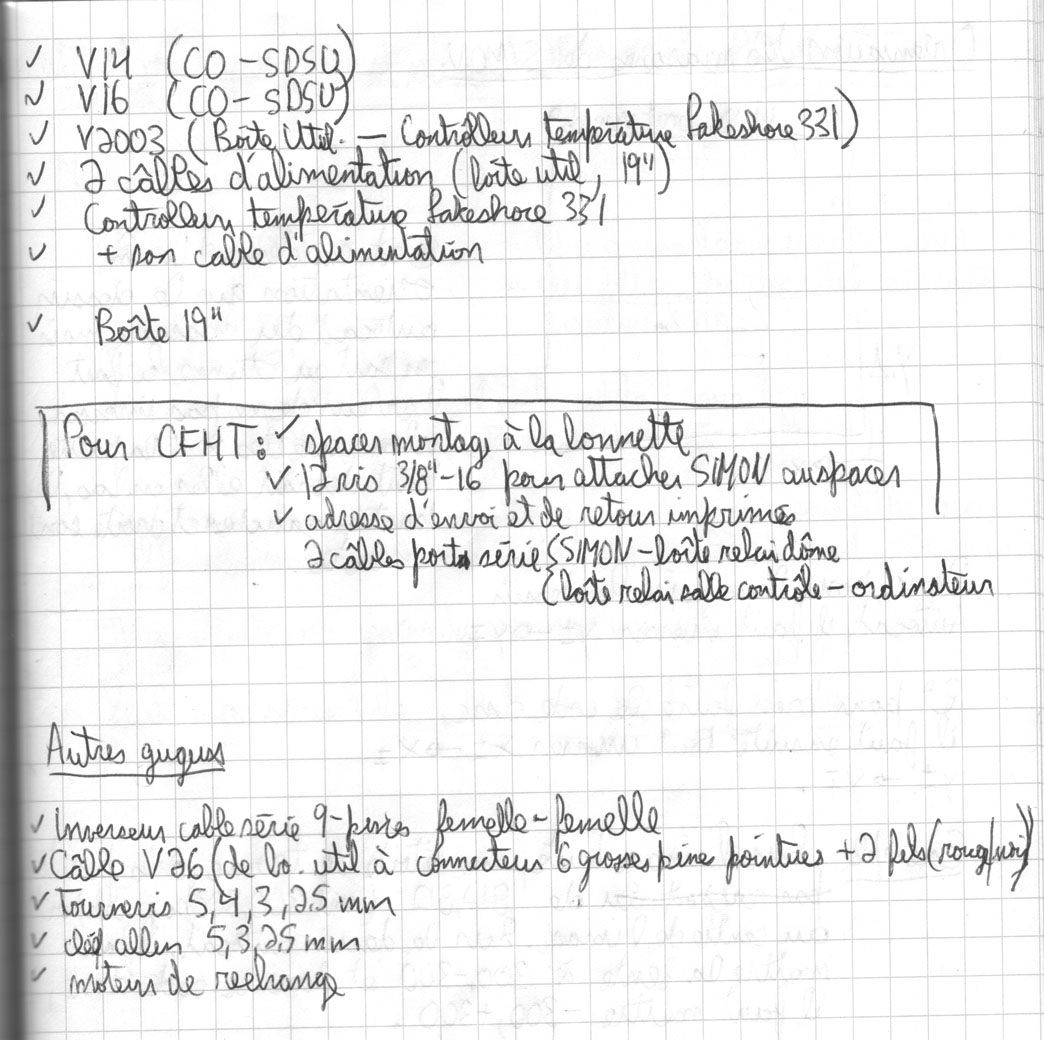 ✓ V14 (CO-SDSU)
✓ V16 (CO-SDSU)
✓ V2003 (Boîte Util. — Contrôleur température Lakeshore 331)
✓ 2 câbles d'alimentation (boîte util, 19")
✓ Controlleur température Lakeshore 331
✓ + son cable d'alimentation
✓ Boîte 19"
Pour CFHT: ✓ spacer montage à la bonnette
✓ 12 vis 3/8"-16 pour attacher SIMON au spacer
✓ adresse d'envoi et de retour imprimés
2 câbles port série {SIMON-boîte relai dôme
{boîte relai salle contrôle-ordinateur
Autres gugusses
✓ Inverseur cable série 9-pines femelle-femelle
✓ Câble V26 (de bo. util à connecteur 6 grosses pines pointues + 2 fils (rouge/noir))
✓ Tournevis 5,4,3,2.5 mm
✓ clés allen 5,3,2.5 mm
✓ moteur de rechange